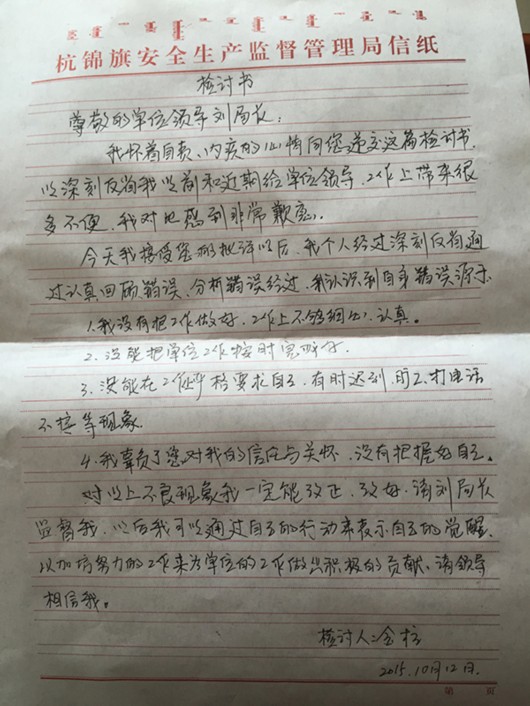 杭锦旗安全生产监督管理局信纸
检讨书
尊敬的单位领导刘局长：
我怀着自责、内疚的心情向您递交这篇检讨书，
以深刻反省我以前和近期给单位领导、工作上带来很
多不便，我对此感到非常歉意。
今天我接受您的批评以后，我个人经过深刻反省通
过认真回顾错误、分析错误经过，我认识到自身错误源于
1.我没有把工作做好，工作上不够细心、认真。
2.没能把单位工作按时完成好.
3.没能在工作严格要求自己，有时迟到、旷工、打电话
不接等现象.
4.我辜负了您对我的信任与关怀，没有把握好自己。
对以上不良现象我一定能改正，改好，请刘局长
监督我，以后我可以通过自己的行动来表示自己的觉醒，
以加倍努力的工作来为单位的工作做出积极的贡献、请领导
相信我。
检讨人：金柱
2015.10月12日.
第 页